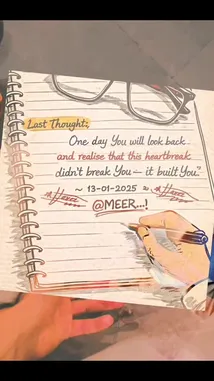 Last Thought:,
One day You will look back
and realise that this heartbreak
didn't break You — it built You."
~ 13-01-2025 ~
@MEER...!